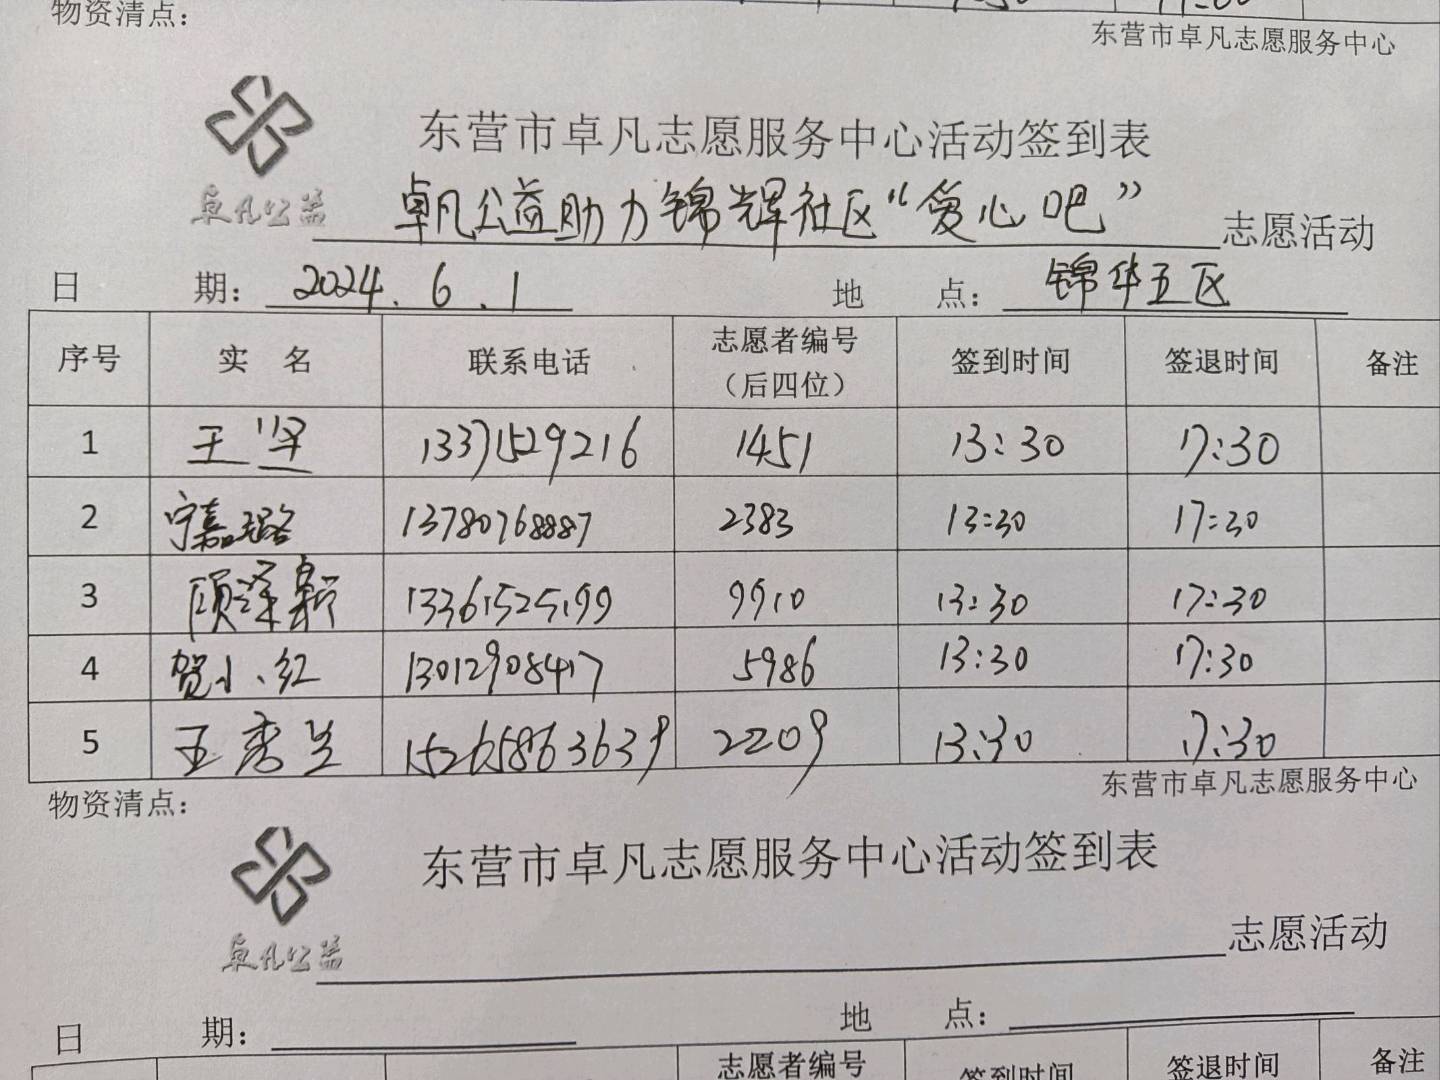 物资清点：
东营市卓凡志愿服务中心
东营市卓凡志愿服务中心活动签到表
卓凡公益
卓凡公益助力锦辉社区“爱心吧”志愿活动
日 期：2024.6.1 地 点：锦华五区
序号 实 名 联系电话 志愿者编号（后四位） 签到时间 签退时间 备注
1 王坚 13371529216 1451 13:30 17:30
2 宁嘉璐 13780768887 2383 13:30 17:30
3 顾泽 13361525199 9910 13:30 17:30
4 贺小红 13012908417 5986 13:30 17:30
5 王秀兰 15265863639 2209 13:30 17:30
物资清点：
东营市卓凡志愿服务中心
东营市卓凡志愿服务中心活动签到表
卓凡公益
志愿活动
日 期： 地 点：
志愿者编号 签到时间 签退时间 备注